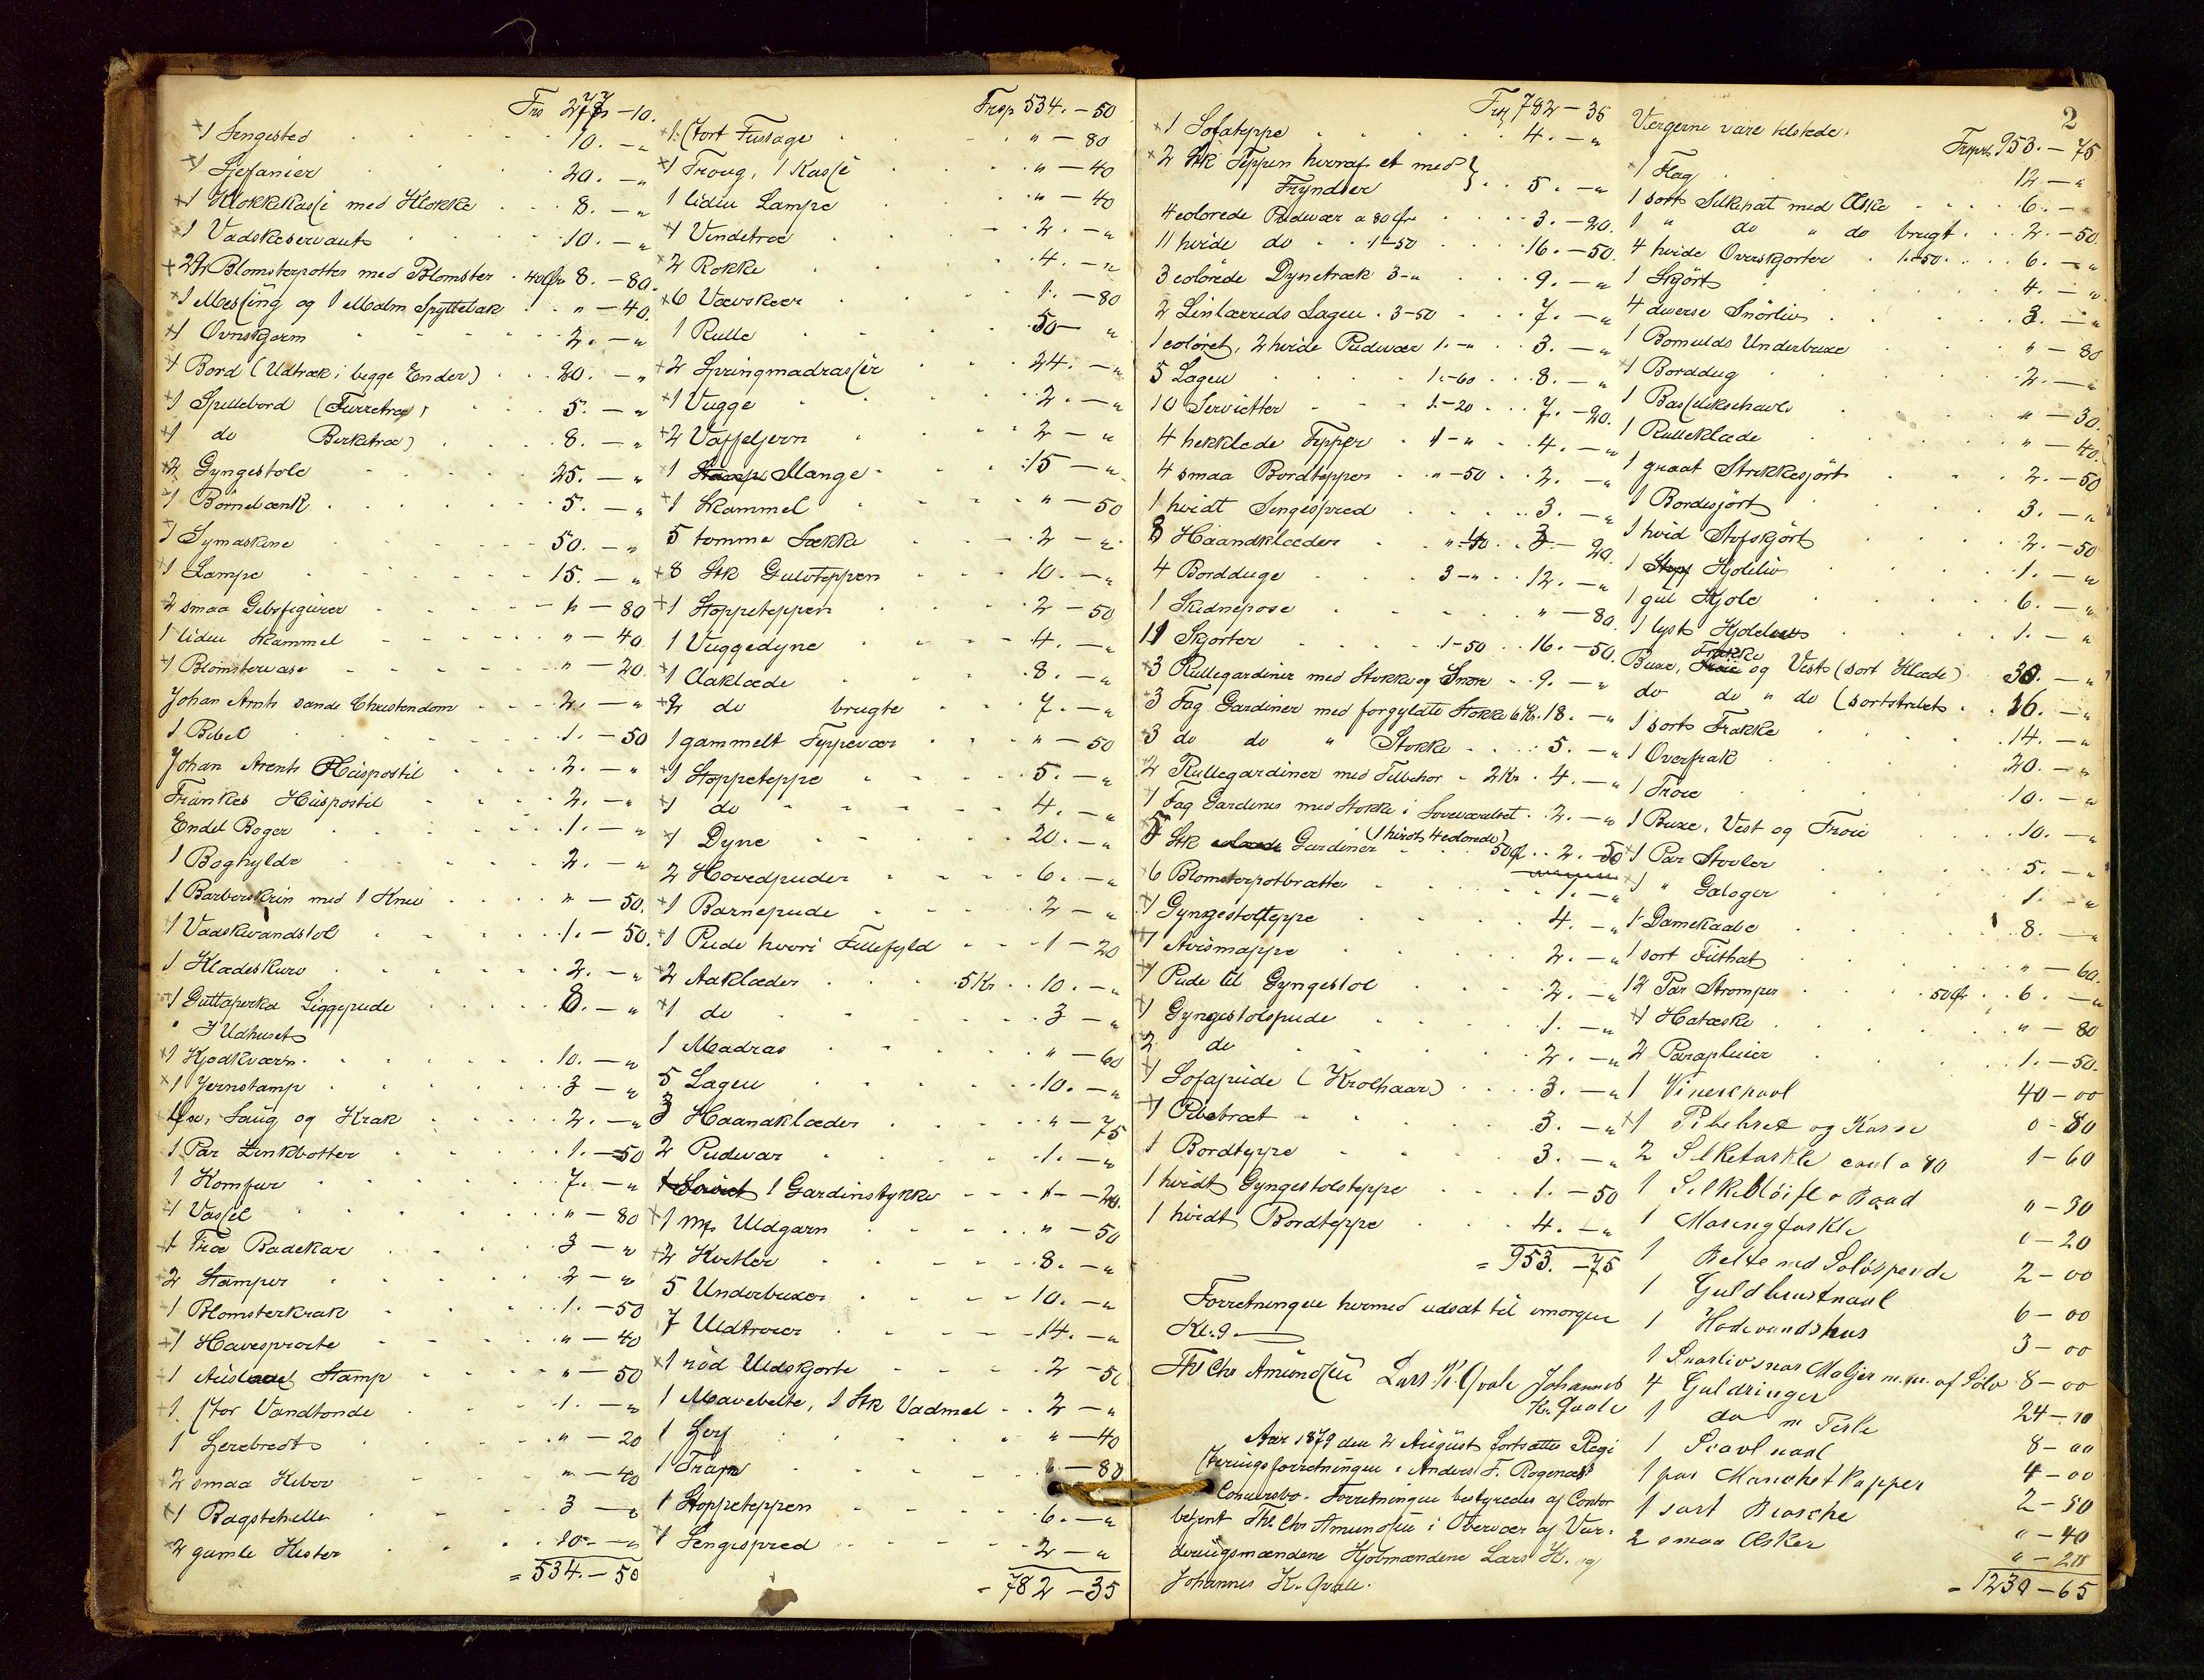 Frs 277 - 10.
×1 Sengested 10. - "
×1 Sjefanier 20. - "
×1 Klokkekasse med Klokke 8. - "
×1 Vadskeservant 10. - "
×22 Blomsterpotter med Blomster 40 Øre 8. - 80.
×1 Messing og 1 Malm Spyttebak " - 40.
×1 Ovnskjerm 2. - "
×1 Bord (Udtræk i begge Ender) 20. - "
×1 Spillebord (Furretræ) 5. - "
×1 do Birketræ) 8. - "
×2 Gyngestole 25. - "
×1 Börnebænk 5. - "
1 Symaskine 50. - "
×1 Lampe 15. - "
×2 smaa Gibsfigurer " - 80
1 liden Skammel " - 40
×1 Blomstervase " - 20
Johan Arnts sande Christendom 2. - "
1 Bibel 1. - 50
Johan Arents Huspostil 2. - "
Frankes Huspostil 2. - "
Endel Böger 1. - "
1 Boghylde 2. - "
1 Barberskrin med 1 Kniv " - 50.
×1 Vadskevandstol 1. - 50.
1 Klædeskurv 2. - "
×1 Guttaperka Liggepude 8. - "
I Udhuset
×1 Kjödkværn 10. - "
×1 Jernstamp 3 - "
Öxe, Saug og Krak 2. - "
1 Par Zinkbötter 1. - 50
1 Komfur 7. - "
×1 Vassel " - 80
×1 Træ Badekar 3 - "
×2 Stamper 2 - "
×1 Blomsterkrak 1. - 50
×1 Havesproite " - 40
×1 Stamp " - 50
×1 stor Vandtonde 1. - "
1 Lerebredt " - 20
×2 smaa Kiber " - 40
×1 Bagstehelle 3 - "
×2 gamle Kister 10 - "
= 534. - 50
Trsp 534. - 50
×1 stort Fustage " - 80
×1 Troug, 1 Kasse " - 40
1 liden Lampe " - 40
×1 Vindetræ 2. - "
×2 Rokke 4. - "
×6 Vævskeer 1. - 80
1 Rulle 50 - "
×2 Springmadrasser 24. - "
×1 Vugge 2. - "
×2 Vaffeljern 2 - "
×1 Slange 15 - "
×1 Skammel " - 50
5 tomme Sække 2 - "
×8 Stk Gulvteppen 10. - "
×1 Stoppeteppen 2 - 50
1 Vuggedyne 4. - "
×1 Aaklæde 8. - "
×2 do brugte 7. - "
1 gammelt Teppevær " - 50
×1 Stoppeteppe 5. - "
×1 do 4. - "
×1 Dyne 20. - "
2 Hovedpuder 6. - "
×1 Barnepude 2 - "
×1 Pude hvori Fillefyld 1 - 20
×2 Aaklæder 5 Kr 10. - "
×1 do 3 - "
1 Madras " - 60
5 Lagen 10. - "
3 Haandklæder " - 75
2 Pudevar 1. - "
1 Gardinstykke 1 - 20.
×1 Uldgarn " - 50
×2 Kvetler 8. - "
5 Underbuxer 10. - "
7 Uldtroier 14. - "
×1 röd Uldskjorte 2 - 50
1 Mavebelte, 1 Stk Vadmel 2 - "
1 " - 40
1 " - 80
1 Stoppeteppen 6. - "
×1 Sengespred 2 - "
= 782 - 35
Trsp 782 - 35
×1 Sofateppe 4. - "
×2 Stk Teppen hvoraf et med
Fryndser } 5. - "
4 colorede Pudevær a 80 Øre 3. - 20.
11 hvide do 1 - 50 16. - 50.
3 colorede Dynetræk 3 - " 9. - "
2 Linlærreds Lagen 3 - 50 7. - "
1 coloret, 2 hvide Pudevær 1. - " 3. - "
5 Lagen 1. - 60 8. - "
10 Servietter 1. - 20 7. - 20.
4 hekklede Tepper 1 - " 4. - "
4 smaa Bordtepper " - 50 2. - "
1 hvidt Sengespred 3. - "
8 Haandklæder " - 40 3 - 20.
4 Bordduge 3 - " 12. - "
1 Skidnepose " - 80.
11 Skjorter 1 - 50 16. - 50.
×3 Rullegardiner med Stokke og Snore 9. - "
×3 Fag Gardiner med forgyldte Stokke 6 Kr. 18. - "
×3 do do " Stokke 5. - "
2 Rullegardiner med Tilbehör 2 Kr 4. - "
1 Fag Gardiner med Stokke i Soveværelset 2. - "
5 Stk Gardiner (1 hvidt, 4 colorede) 50 Ø 2. - 50
×6 Blomsterpotbrætter 1. - "
×1 Gyngestolteppe 4. - "
×1 Avismappe 2. - "
×1 Pude til Gyngestol 2. - "
×1 Gyngestolspude 1. - "
2 do 2. - "
×1 Sofapude (Krolhaar) 3. - "
×1 Pibebræt 3. - "
1 Bordteppe 3. - "
1 hvidt Gyngestolsteppe 1. - 50
1 hvidt Bordteppe 4. - "
= 953. - 75
Forretningen hermed udsat til imorgen
Kl. 9
Th Chr Amundsen Lars K. Qvale Johannes
K. Qvale
Aar 1879 den 2 August fortsattes Regi
streringsforretningen i Anders F. Rogenæs
Concursbo. Forretningen bestyredes af Contor
betjent Th. Chr Amundsen i Overvær af Vur-
deringsmændene Kjöbmændene Lars K. og
Johannes K. Qvale.
2
Vergerne vare tilstede.
Trsprt 953. - 75
×1 Flag 12 - "
1 sort Silkehat med Æske 6. -
1 " do " do brugt 2. - 50.
4 hvide Overskjorter 1. - 50. 6. - "
1 Skjört 4. - "
4 diverse Snörliv 3. - "
1 Bomulds Underbuxe " - 80
×1 Borddug 2. - "
1 " - 30.
1 Rulleklæde " - 40.
1 graat Strikkesjört 2. - 50
1 Bordesjört 3. - "
1 hvid Stofskjört 2. - 50
1 Kjoleliv 1. - "
1 gul Kjole 6. - "
1 lyst 1. - "
Frakke
Buxe, og Vest (sort Klæde) 30. - "
do do " do (sortstribet 16. - "
1 sort Frakke 14. - "
1 Overfrak 20. - "
1 Troie 10. - "
1 Buxe, Vest og Troie 10. - "
×1 Par Stovler 5. - "
×1 " Galoger 1. - "
1 Damekaabe 8. - "
1 sort Filthat " - 60.
12 Par Stromper 50 Ø 6. - "
×1 Hatæske " - 80
2 Parapluier 1. - 50.
1 40 - 00
×1 Pibebret og Kasse 0 - 80
2 Silketørkle a 80 1 - 60
1 " - 30
1 0 - 20
1 Belte med Sölvspende 2 - 00
1 Guldbrustnaal 6 - 00
1 Hodevandshus 3 - 00
1 Maljer m.m. af Sölv 8 - 00
4 Guldringer 24 - 00
1 do m 8 - 00
1 4 - 00
1 par Mansjetknapper 2 - 50
1 sort Brosche " - 40
2 smaa Æsker " - 20
= 1239 - 65